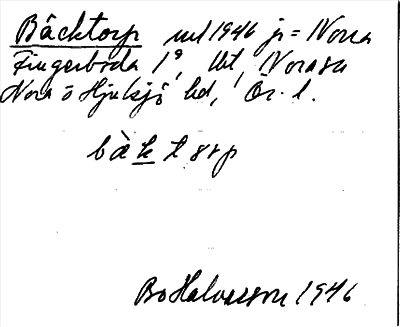 Bäcktorp utl 1946 js = Nora
Fingerboda 1⁹, lbt, Norasn
Nora o Hjulsjö hd, Ör. l.
bàktårp
Bo Halvarson 1946